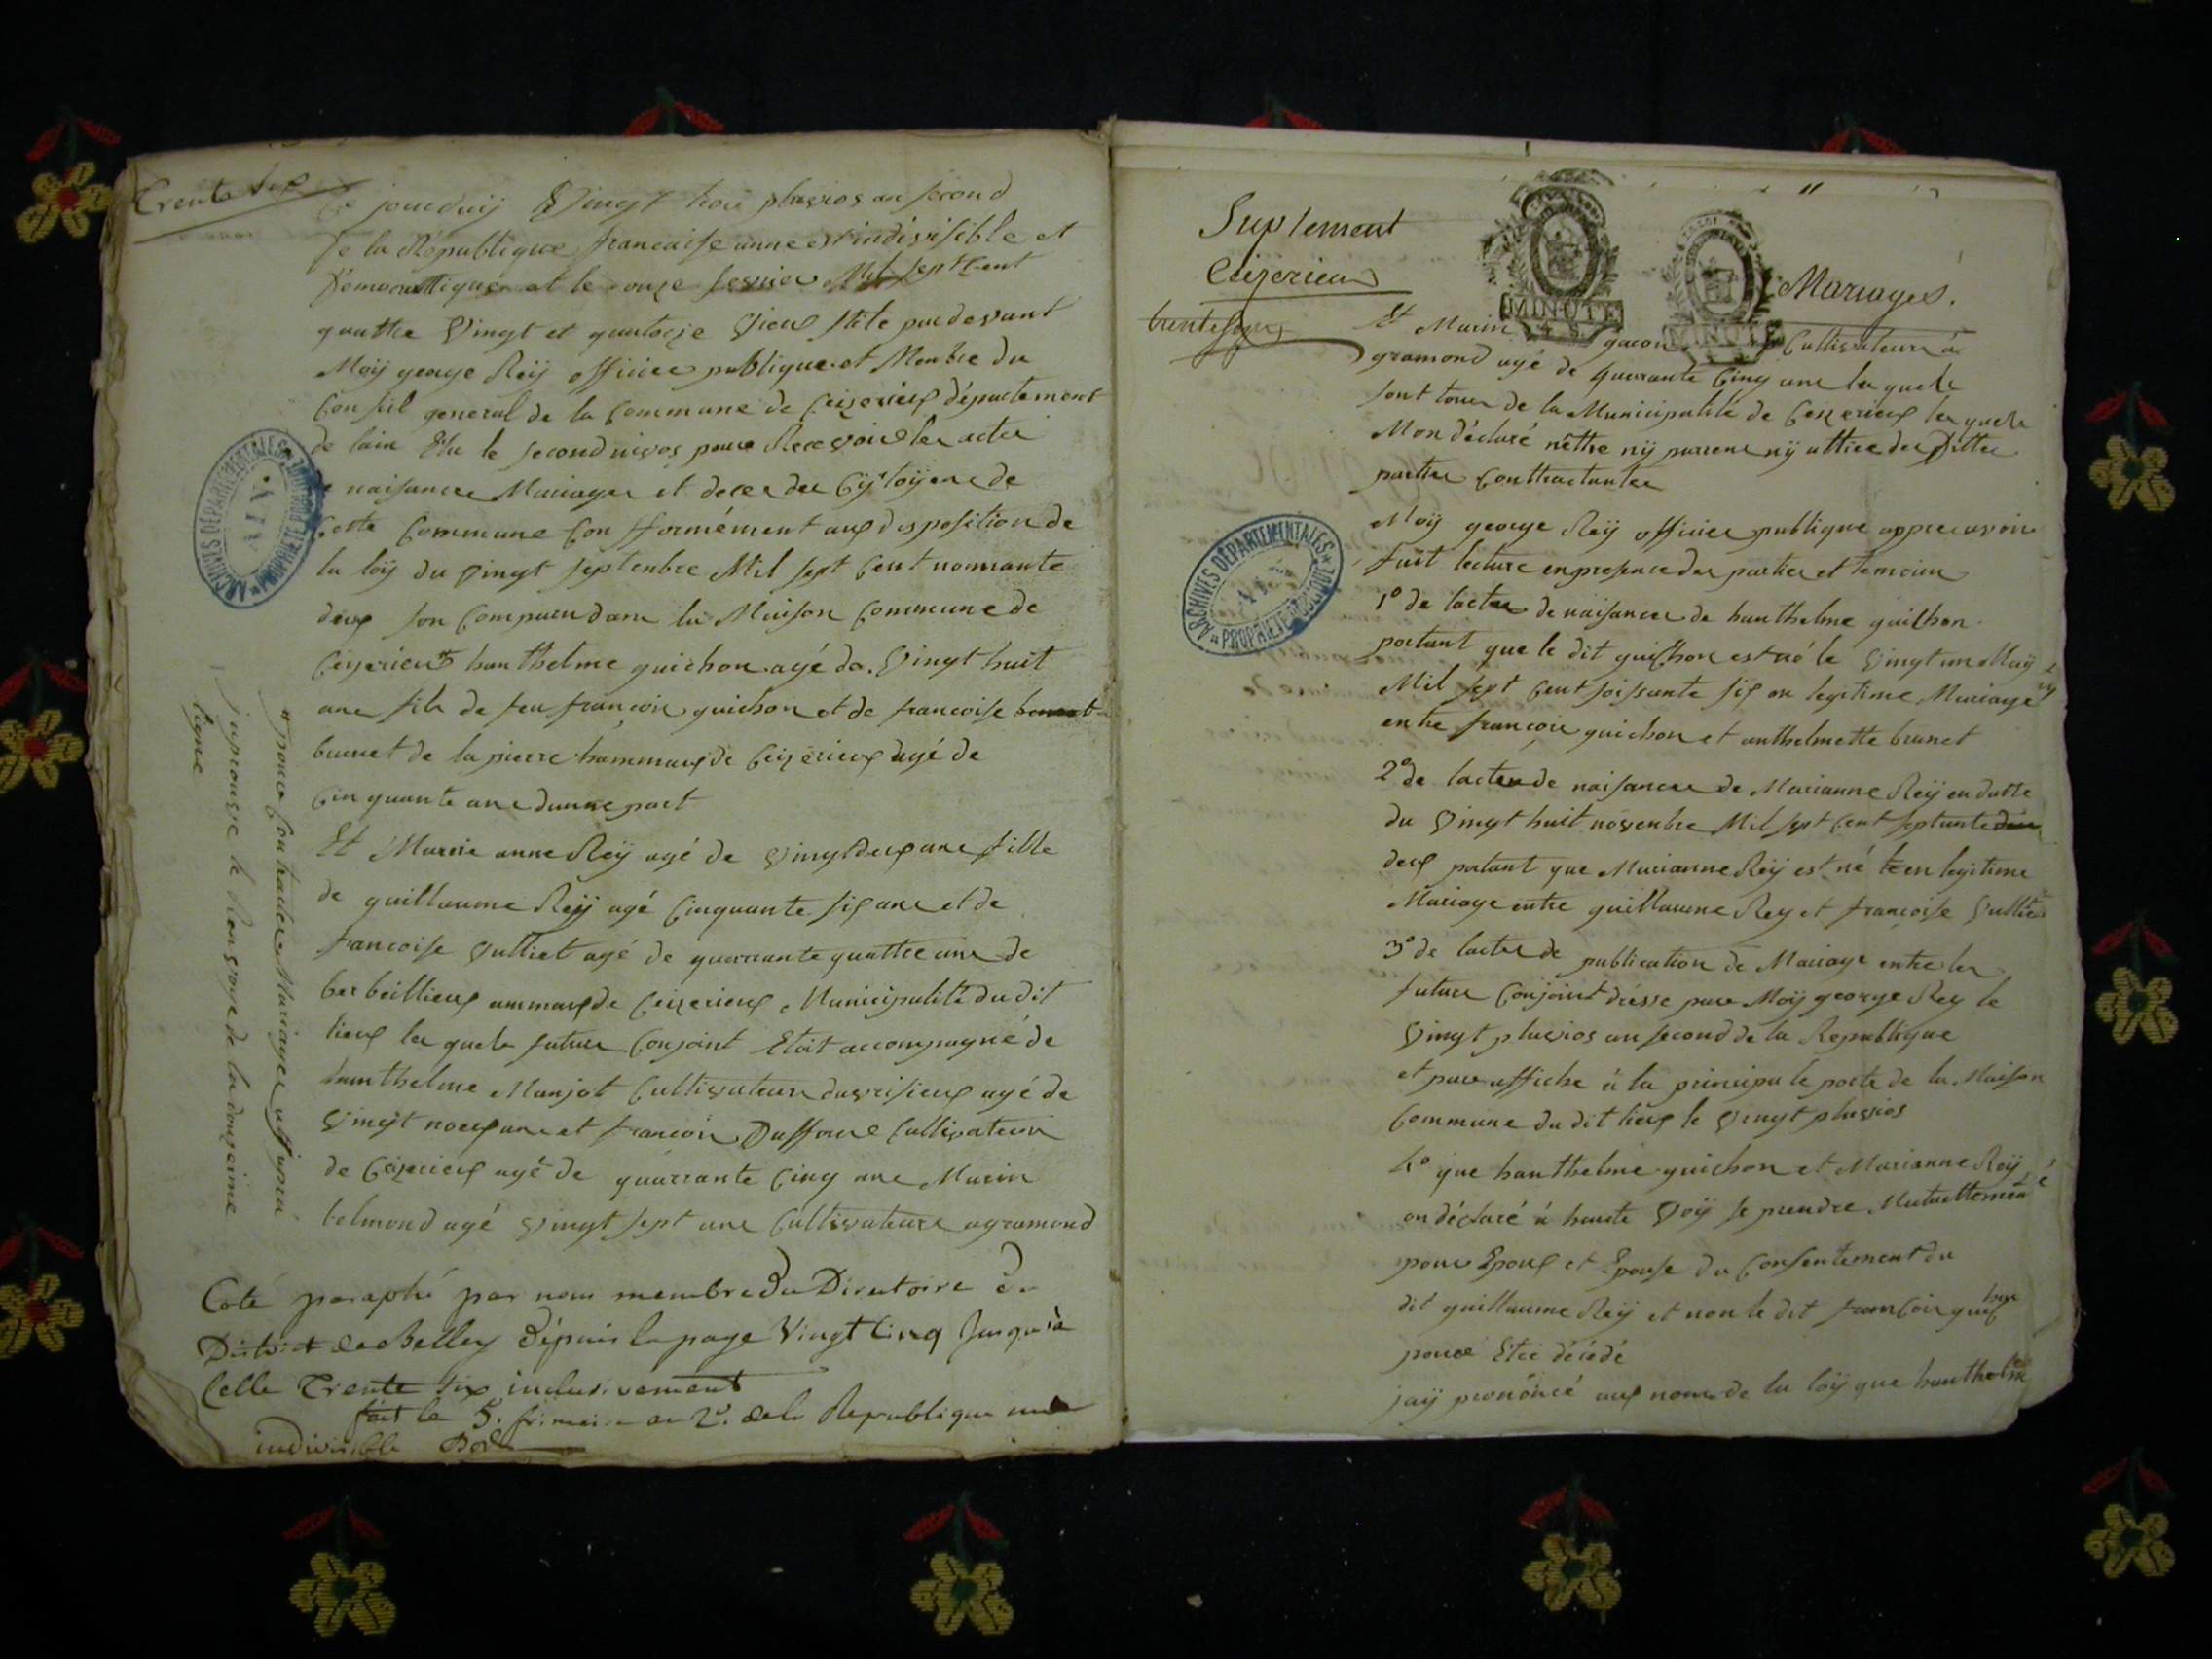 Trente six
Ce jourduij Vingt trois pluvios an second
de la République francaise une et indivisible et
Démocratique et le onze fevrier Mil sept Cent
quattre Vingt et quatorze Vieux stile par devant
Moÿ george Reÿ officier publique et Membre du
Conseil general de la Commune de Ceizerieux département
de lain Elu le second nivos pour Recevoir les actes
naisances Mariages et deces des Cijtoÿens de
Cette Commune Conformément aux disposition de
la loÿ du Vingt septenbre Mil sept Cent nonnante
deux son Comparu dans la Maison Commune de
Ceizerieux hanthelme guichon agé de Vingt huit
ans fils de feu francois guichon et de francoise
burnet de la pierre hammaux de Ceizerieux agé de
Cinquante ans dunne part
Et Marie anne Reÿ agé de Vingt deux ans fille
de guillaume Reÿ agé Cinquante six ans et de
francoise Vulliet agé de quarrante quattre ans de
berbeillieux ammaux de Ceizerieux Municipalité du dit
lieux les quels futurs Conjoint Etoit accompagné de
hanthelme Manjot Cultivateur davrisieux agé de
Vingt noeuf ans et francois Duffour Cultivateur
de Ceizerieux agé de quarrante Cinq ans Marin
belmond agé Vingt sept ans Cultivateur agramond
pour Contracter Mariages
japrouve le Renvoye de la douzeime
ligne
Coté paraphé par nous membre du Directoire du
District de Belley dépuis la page Vingt Cinq Jusqu'à
Celle Trente Six inclusivement
fait le 5. frimaire an 2e. de la Republique une
indivisible
ARCHIVES DÉPARTEMENTALES
AIN
PROPRIÉTÉ PUBLIQUE
Suplement
Ceizerieux
MINUTE
MINUTE
Mariages.
Et Marin gacon Cultivateur à
gramond agé de quarante Cinq ans les quels
sont tous de la Municipalité de Ceizerieux les quels
Mon déclaré nêttre nÿ parrens nÿ alliés des Dittes
parties Conttractantes
Moÿ george Reÿ officier publique appres avoir
fait lecture en presence des parties et temoins
1º de lactes de naisances de hanthelme guichon
portant que le dit guichon est né le Vingt un Maÿ
Mil sept Cent soissante six en legitime Mariage
entre francois guichon et anthelmette brunet
2º de lactes de naisances de Marianne Reÿ en datte
du Vingt huit novenbre Mil sept Cent septante
deux portant que Marianne Reÿ est né en legitime
Mariage entre guillaume Rey et francoise Vulliet
3º de lactes de publication de Mariage entre les
futurs Conjoint drésse par Moÿ george Rey le
Vingt pluvios an second de la Republique
et par affiche à la principale porte de la Maison
Commune du dit lieux le Vingt pluvios
4º que hanthelme guichon et Marianne Reÿ
on déclaré à haute Voÿ se prendre Mutuellement
pour Epoux et Epouse du Consentement du
dit guillaume Reÿ et non le dit francois guichon
pour Etre décédé
jaÿ prononcé aux nom de la loÿ que hanthelme
ARCHIVES DÉPARTEMENTALES
AIN
PROPRIÉTÉ PUBLIQUE